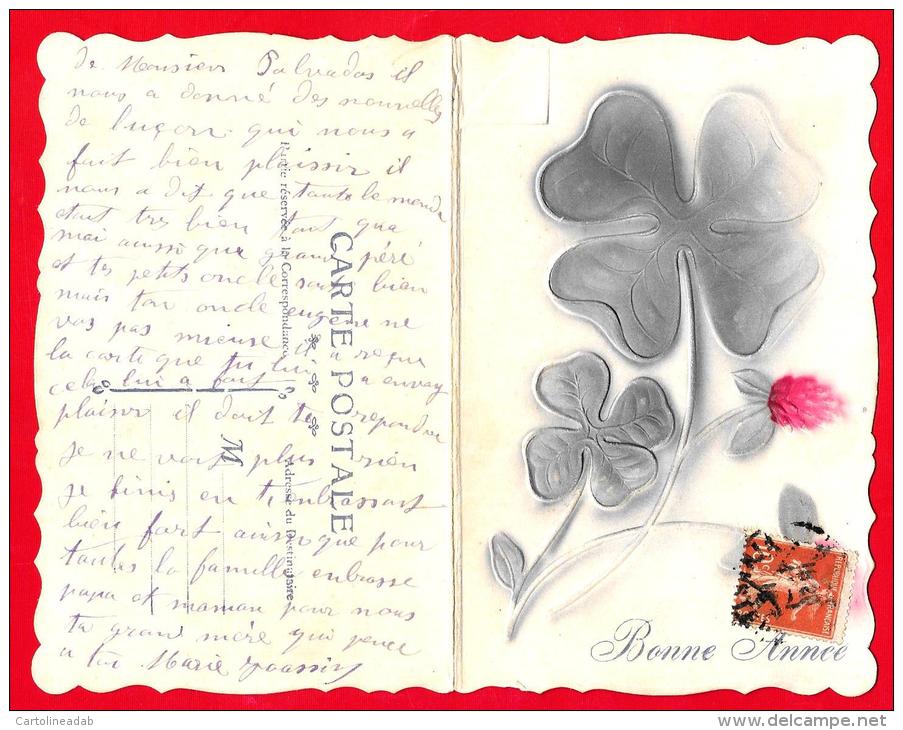 de Monsieur Salvadas il
nous a donné des nouvelles
de luçon qui nous a
fait bien plaissir il
nous a dit que tautle monde
etait tres bien tant que
moi ausso que grand péré
et tes petits oncle sont bien
mais ton oncle eugene ne
vas pas mieuse il a reçu
la carte que tu lui a envoy
cela lui a fait
plaisir il doit te repondre
je ne vois plus rien
je finis en t'enbrassant
bien fort ainsi que pour
toutes la famille enbrasse
papa et maman pour nous
ta grand mére qui pence
a toi Marie
CARTE POSTALE
Partie réservée à la Correspondance
Adresse du Destinataire
M
Bonne Année
REPUBLIQUE FRANÇAISE
10 c
Cartolineadab
delcampe.net